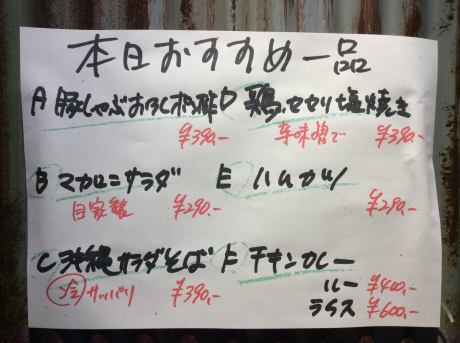 本日おすすめ一品
A 豚しゃぶおろしポン酢
¥390.-
B マカロニサラダ
自家製 ¥290.-
C 沖縄サラダそば
サッパリ ¥390.-
D 鶏セセリ塩焼き
辛味噌で ¥390.-
E ハムカツ
¥290.-
F チキンカレー
ルー ¥400.-
ライス ¥600.-